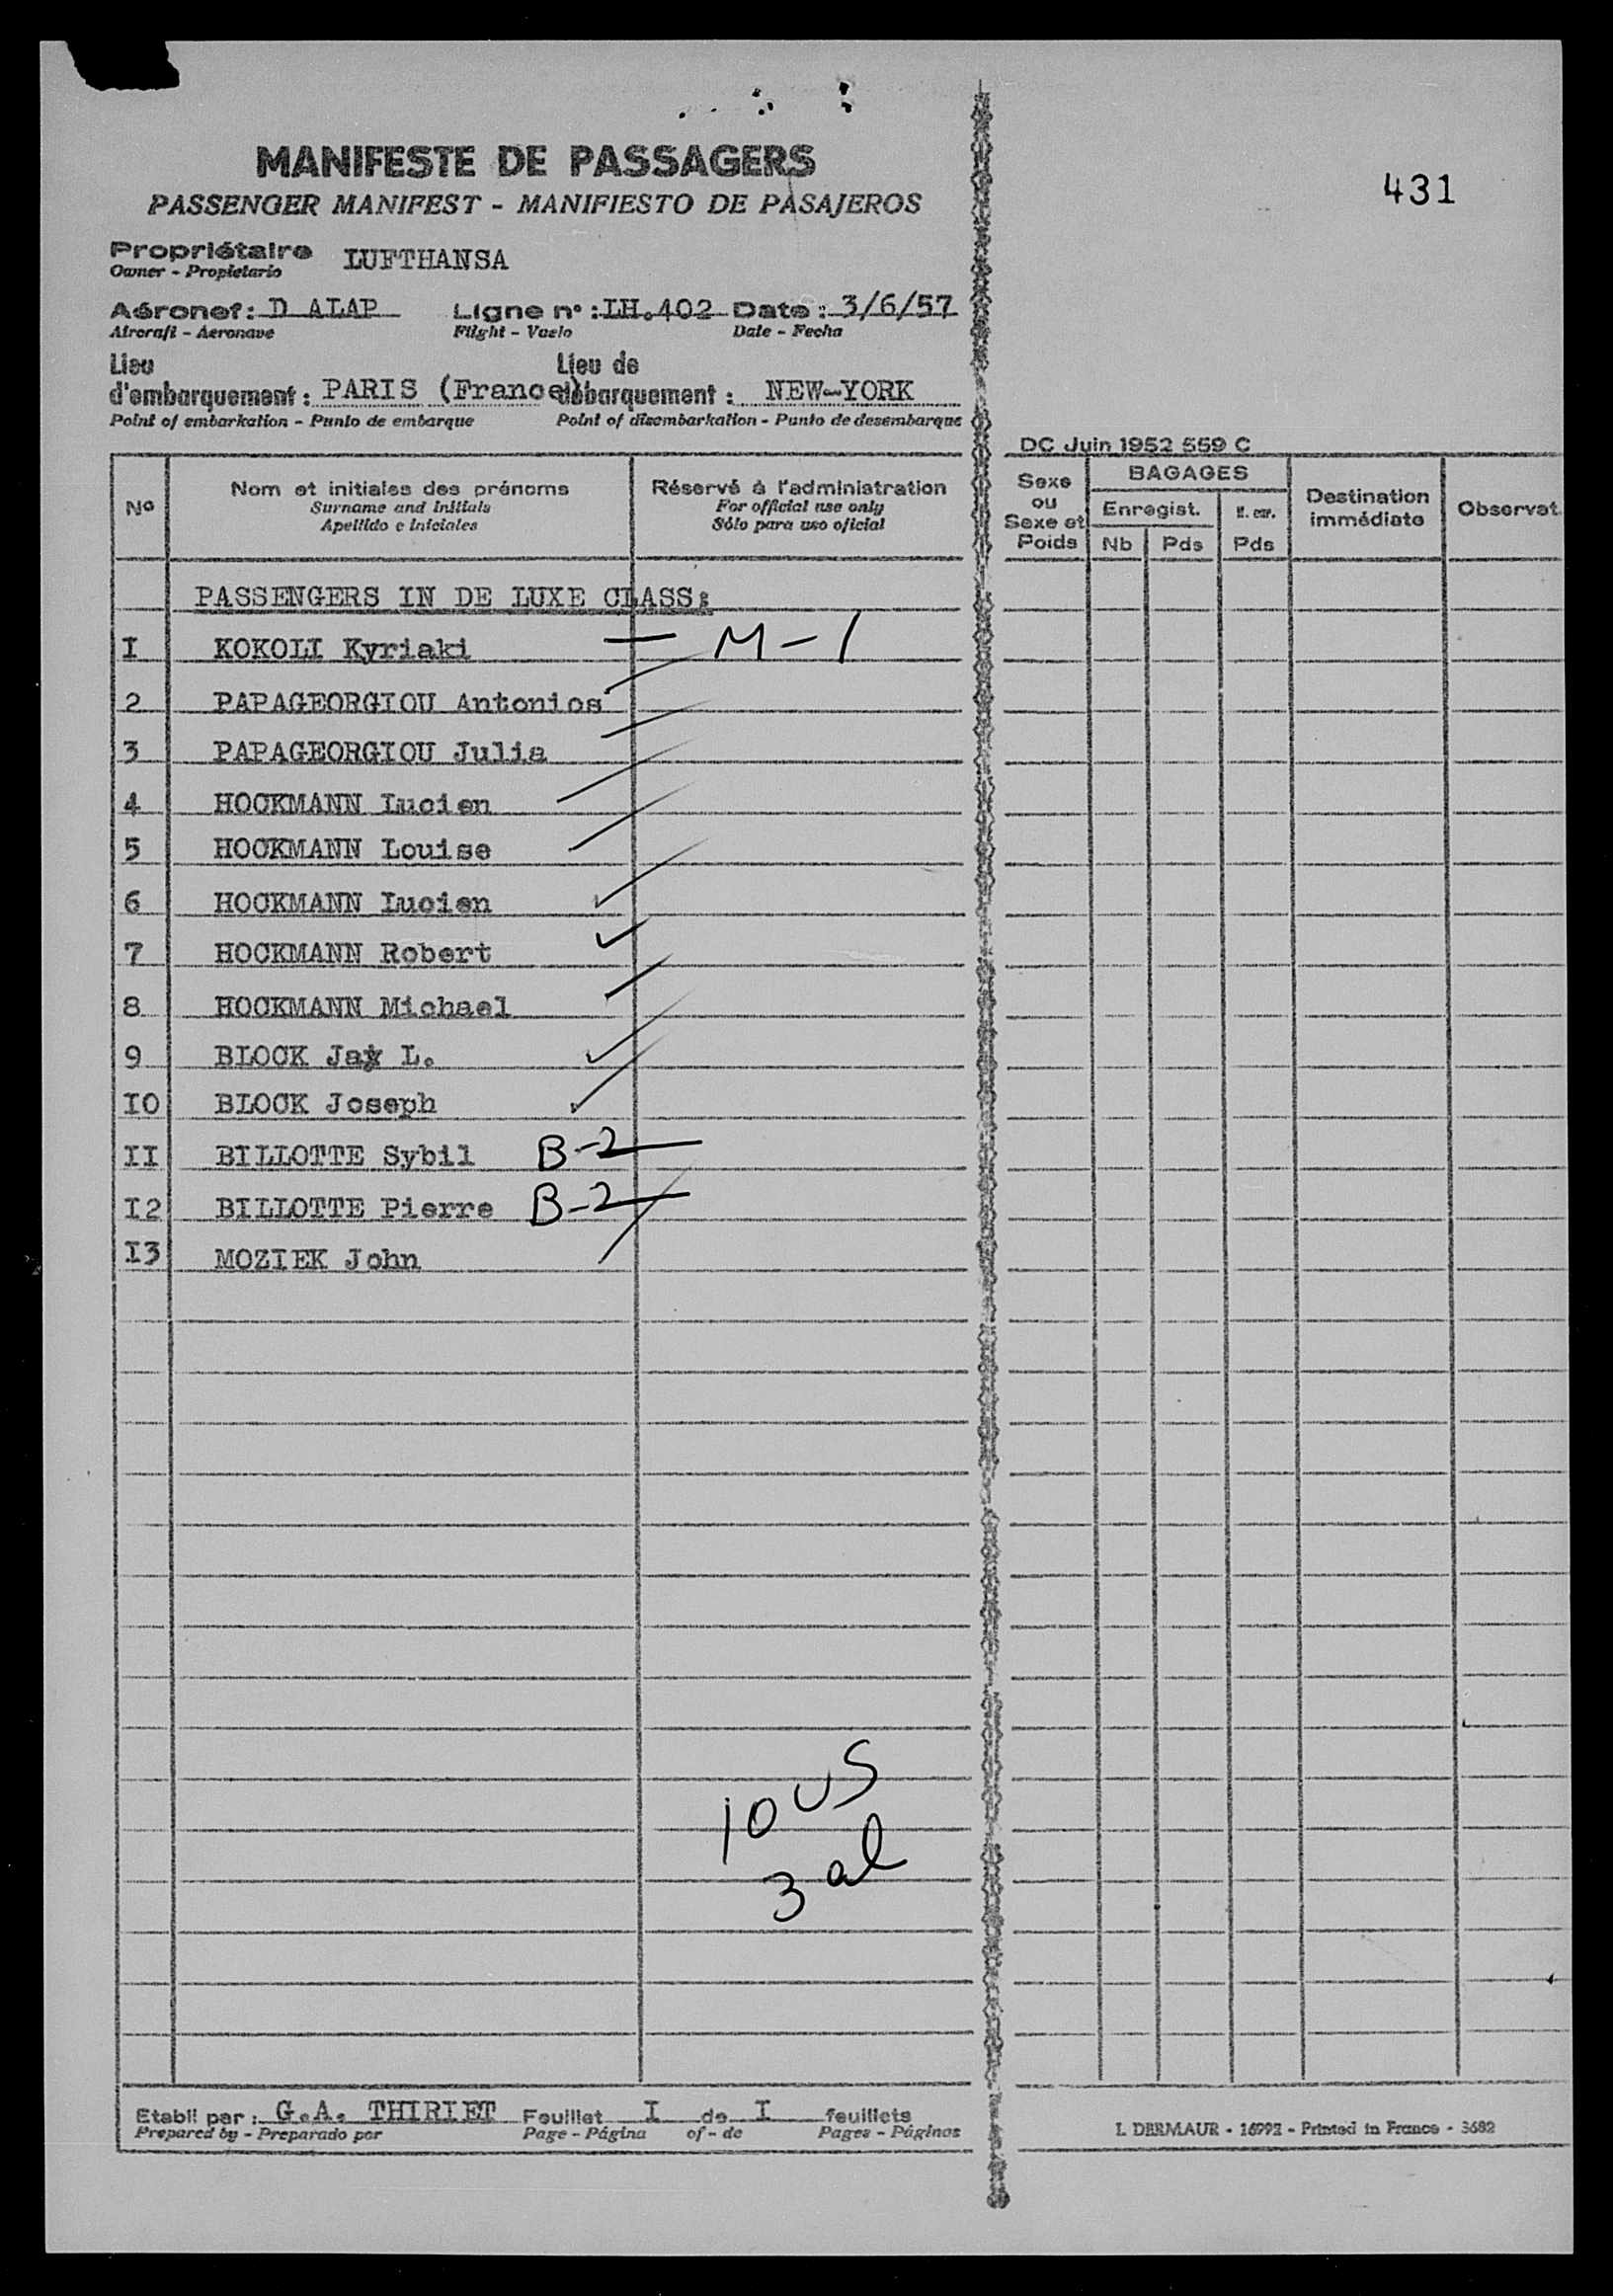 MANIFESTE DE PASSAGERS
PASSENGER MANIFEST - MANIFIESTO DE PASAJEROS
431
Propriétaire LUFTHANSA
Owner - Propietario
Aéronef: D ALAP Ligne n°: LH.402 Date: 3/6/57
Aircraft - Aeronave Flight - Vuelo Date - Fecha
Lieu d'embarquement: PARIS (France) Lieu de débarquement: NEW-YORK
Point of embarkation - Punto de embarque Point of disembarkation - Punto de desembarque
DC Juin 1952 559 C
Nº Nom et initiales des prénoms Réservé à l'administration Sexe ou Sexe et Poids BAGAGES Destination immédiate Observat.
Surname and initials For official use only Enregist.
Apellido e iniciales Sólo para uso oficial Nb Pds Pds
PASSENGERS IN DE LUXE CLASS:
I KOKOLI Kyriaki — M-1
2 PAPAGEORGIOU Antonios
3 PAPAGEORGIOU Julia
4 HOCKMANN Lucien
5 HOCKMANN Louise
6 HOCKMANN Lucien
7 HOCKMANN Robert
8 HOCKMANN Michael
9 BLOCK Jay L.
I0 BLOCK Joseph
II BILLOTTE Sybil B-2
I2 BILLOTTE Pierre B-2
I3 MOZIEK John
10 US
3 al
Etabli par: G.A. THIRIET Feuillet I de I feuillets
Prepared by - Preparado por Page - Página of - de Pages - Páginas
L. DERMAUR - 16992 - Printed in France - 3682